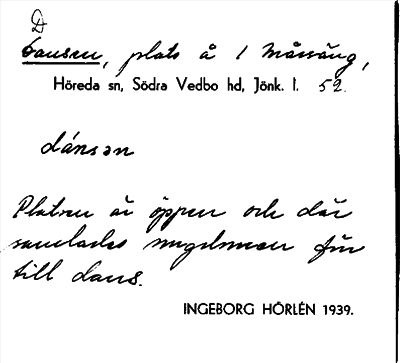 D
Dansen, plats å 1 Mässäng,
Höreda sn, Södra Vedbo hd, Jönk. l. 52.
dánsən
Platsen är öppen och där
samlades ungdomen för
till dans.
INGEBORG HÖRLÉN 1939.